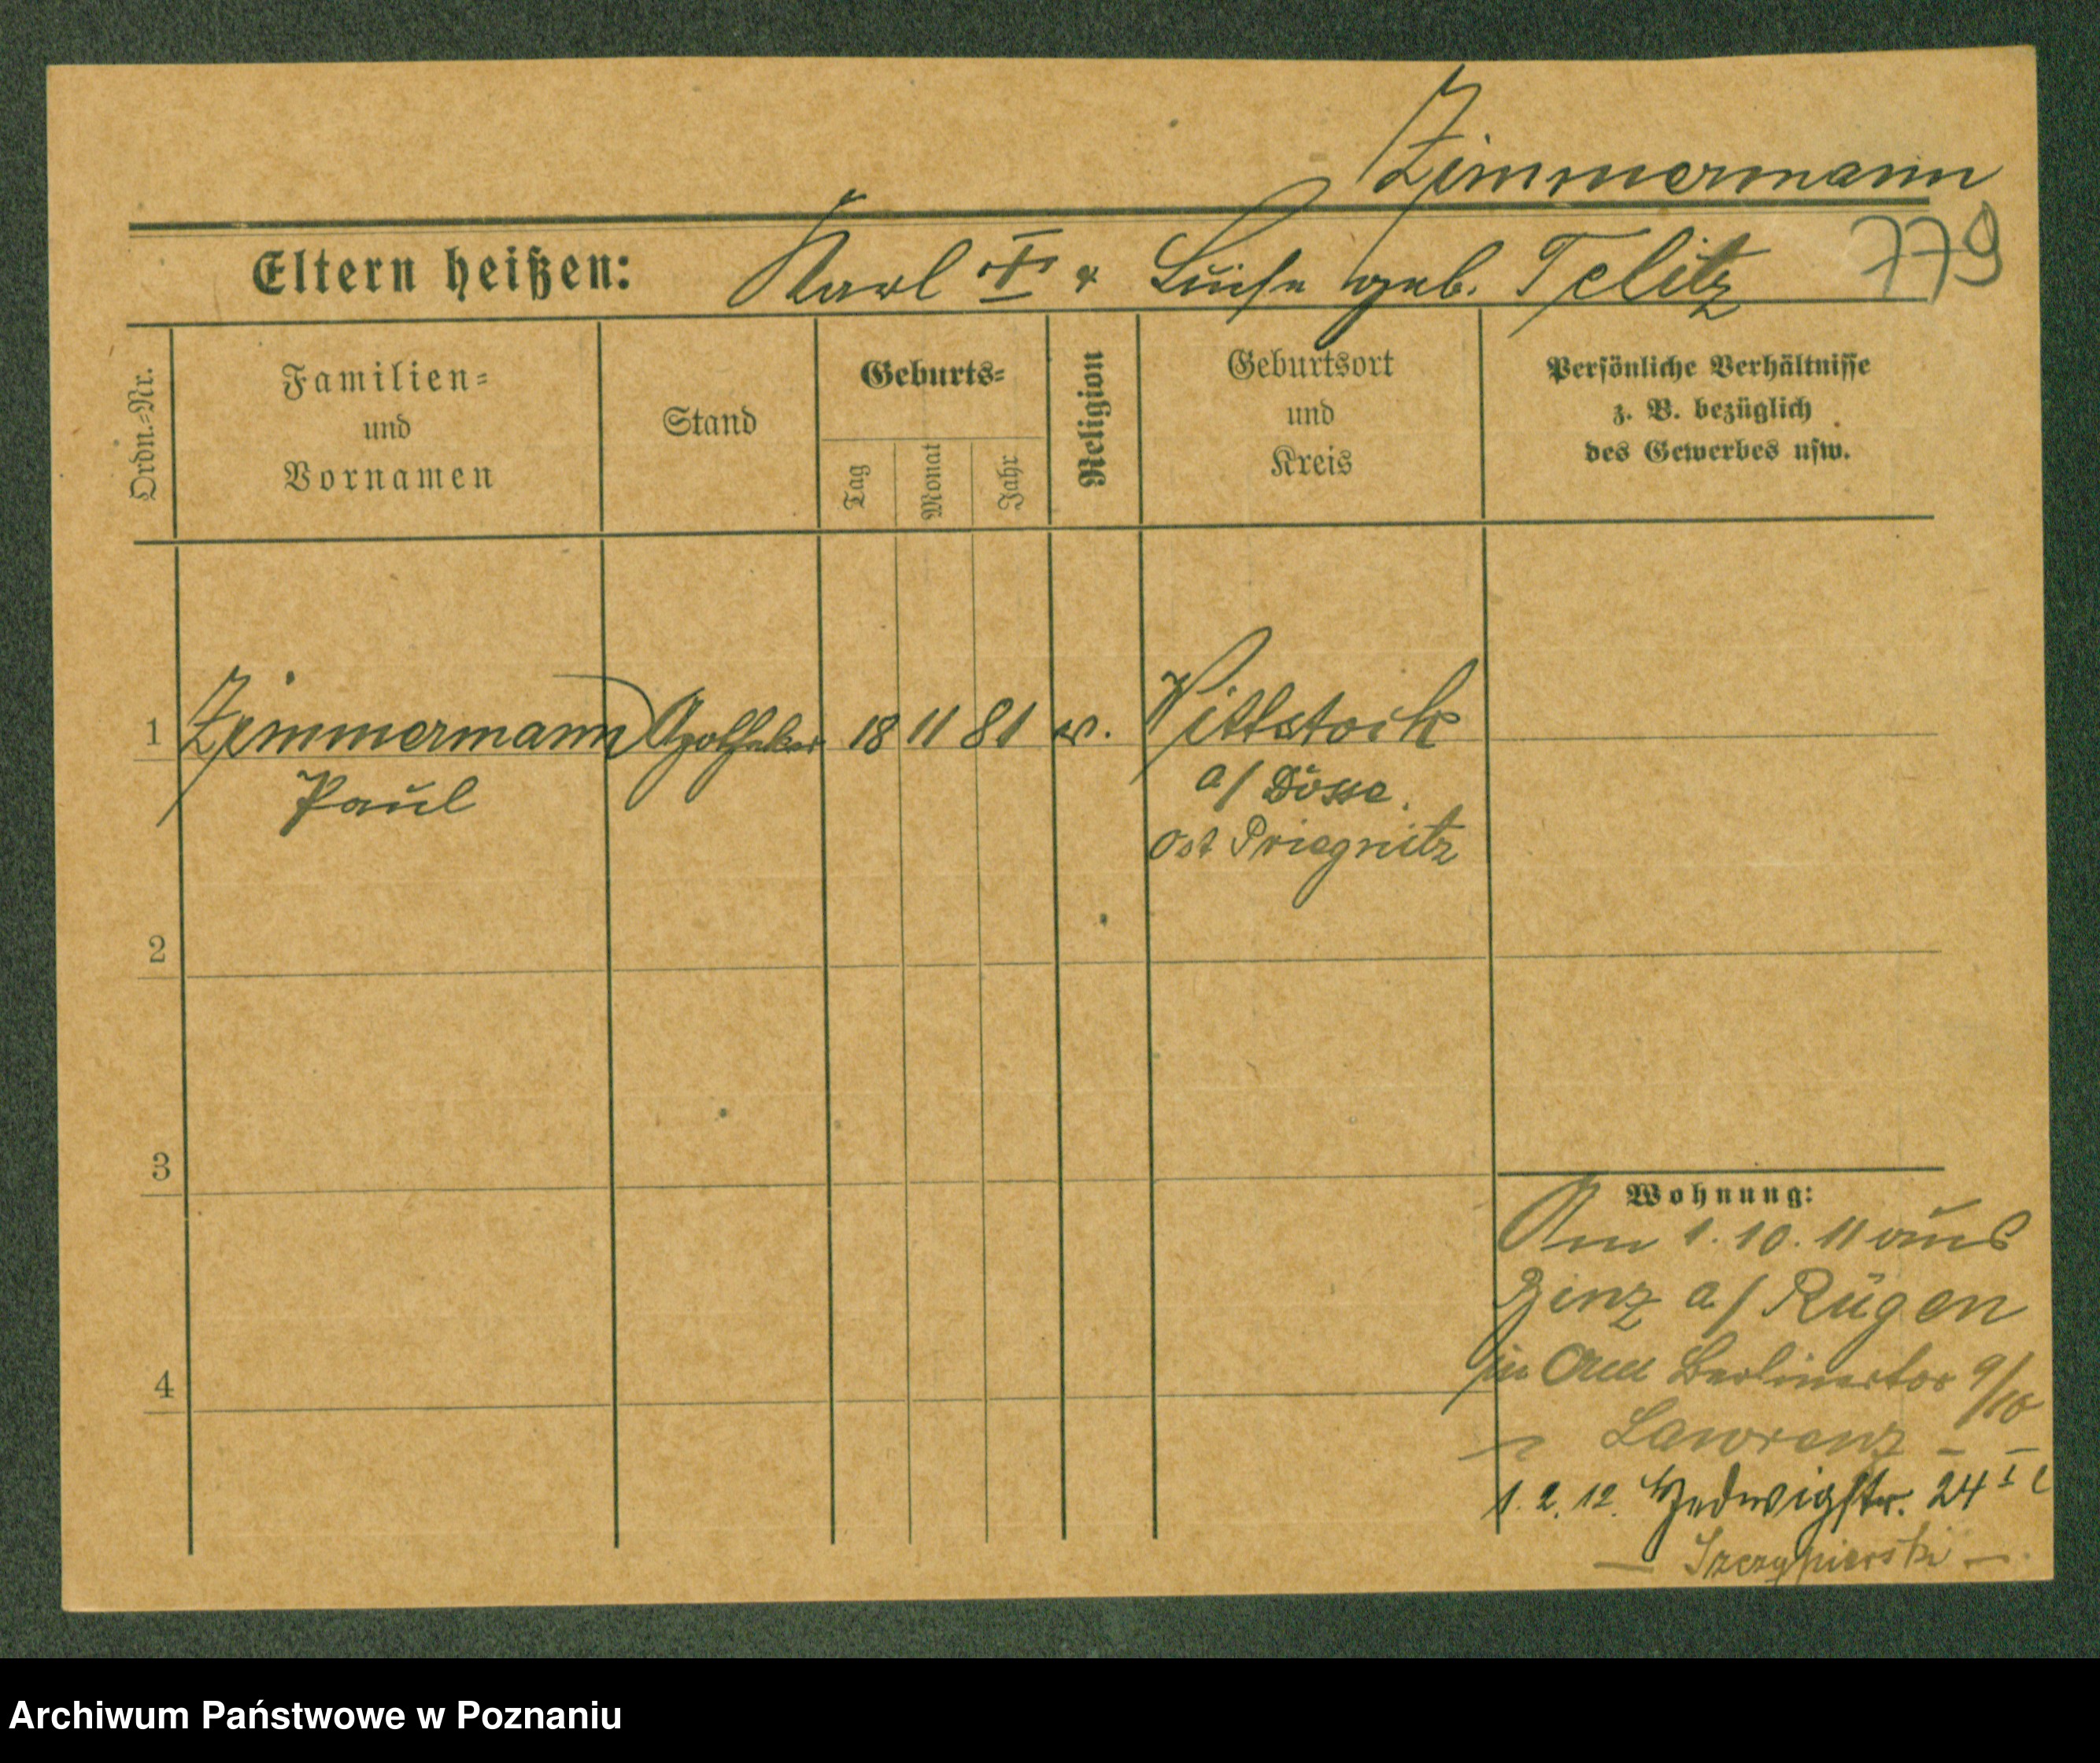 Zimmermann
779
Eltern heißen: Karl † & Luise geb. Telitz
Ordn.=Nr.
Familien=
und
Vornamen
Stand
Geburts=
Tag
Monat
Jahr
Religion
Geburtsort
und
Kreis
Persönliche Verhältnisse
z. B. bezüglich
des Gewerbes usw.
1 Zimmermann Apotheker 18 11 81 ev. Wittstock
Paul
a/ Dosse.
Ost Priegnitz
2
3
4
Wohnung:
Am 1. 10. 11 aus
Binz a/ Rügen
Am Berlinertor 9/10
Lawrenz -
1. 2. 12. Hedwigstr. 24 I
— Szczypierski —
Archiwum Państwowe w Poznaniu